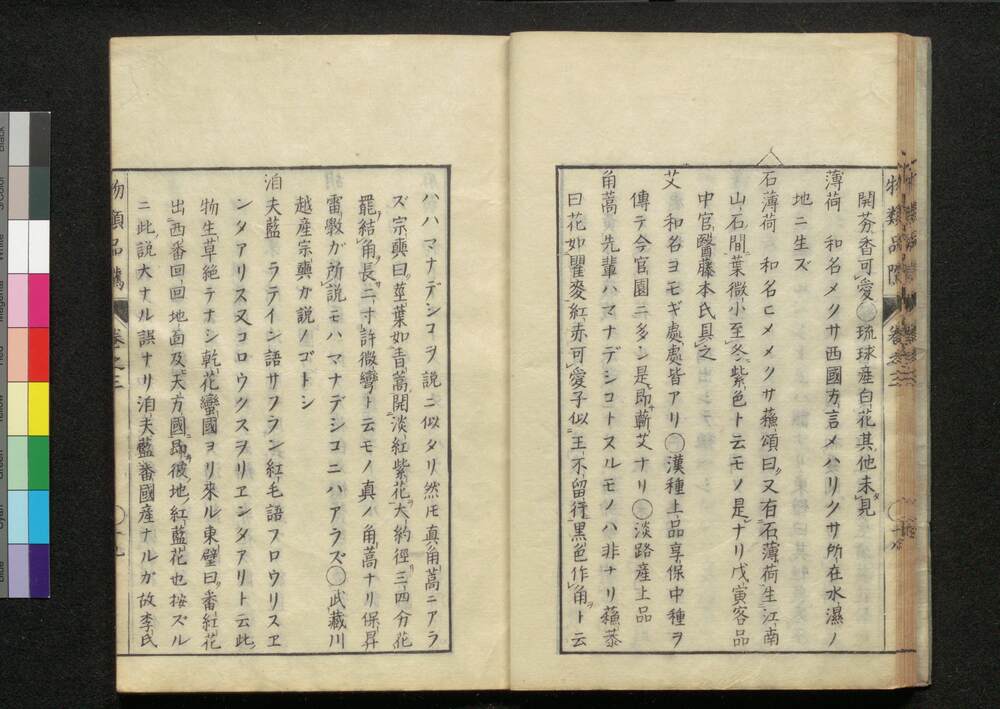 物類品隲 卷之三
開芬香可愛○琉球産白花其他未見
薄荷 和名メクサ西國方言メハリクサ所在水濕ノ
地ニ生ズ
石薄荷 和名ヒメメクサ蘓頌曰又有石薄荷生江南
山石間葉微小至冬紫色ト云モノ是ナリ戊寅客品
中官醫藤本氏具之
艾 和名ヨモギ處處皆アリ○漢種上品享保中種ヲ
傳テ今官園ニ多シ是即蘄艾ナリ○淡路産上品
角蒿 先輩ハマナデシコトスルモノハ非ナリ蘓恭
曰花如瞿麥紅赤可愛子似王不留行黒色作角ト云
ハハマナデシコヲ説ニ似タリ然𪜈真角蒿ニアラ
ズ宗奭曰莖葉如青蒿開淡紅紫花大約徑三四分花
罷結角長二寸許微彎ト云モノ真ノ角蒿ナリ保昇
雷斅ガ所説モハマナデシコニハアラズ○武蔵川
越産宗奭カ説ノゴトシ
泊夫藍 ラテイン語サフラン紅毛語フロウリスヱ
ンタアリス又コロウクスヲリヱンタアリト云此
物生草絶テナシ乾花蠻國ヨリ來ル東壁曰番紅花
出西番回回地面及天方國即彼地紅藍花也按ズル
ニ此説大ナル誤ナリ泊夫藍番國産ナルガ故李氏
物類品隲 卷之三 ○十九